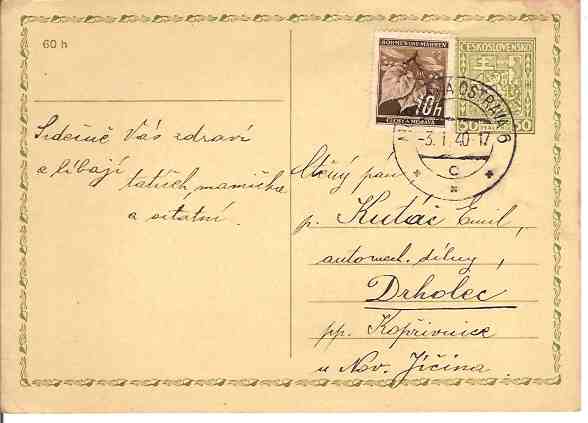 60 h
BÖHMEN UND MÄHREN
10h
ČECHY A MORAVA
ČESKOSLOVENSKO
50 50
OSTRAVA 6
-3. I. 40-17
C
Srdečně Vás zdraví
a líbají
tatíček, mamička
a ostatní.
Ctěný pán
p. Kutáč Emil,
automech. dílny,
Drholec
pp. Kopřivnice
u Nov. Jičína.